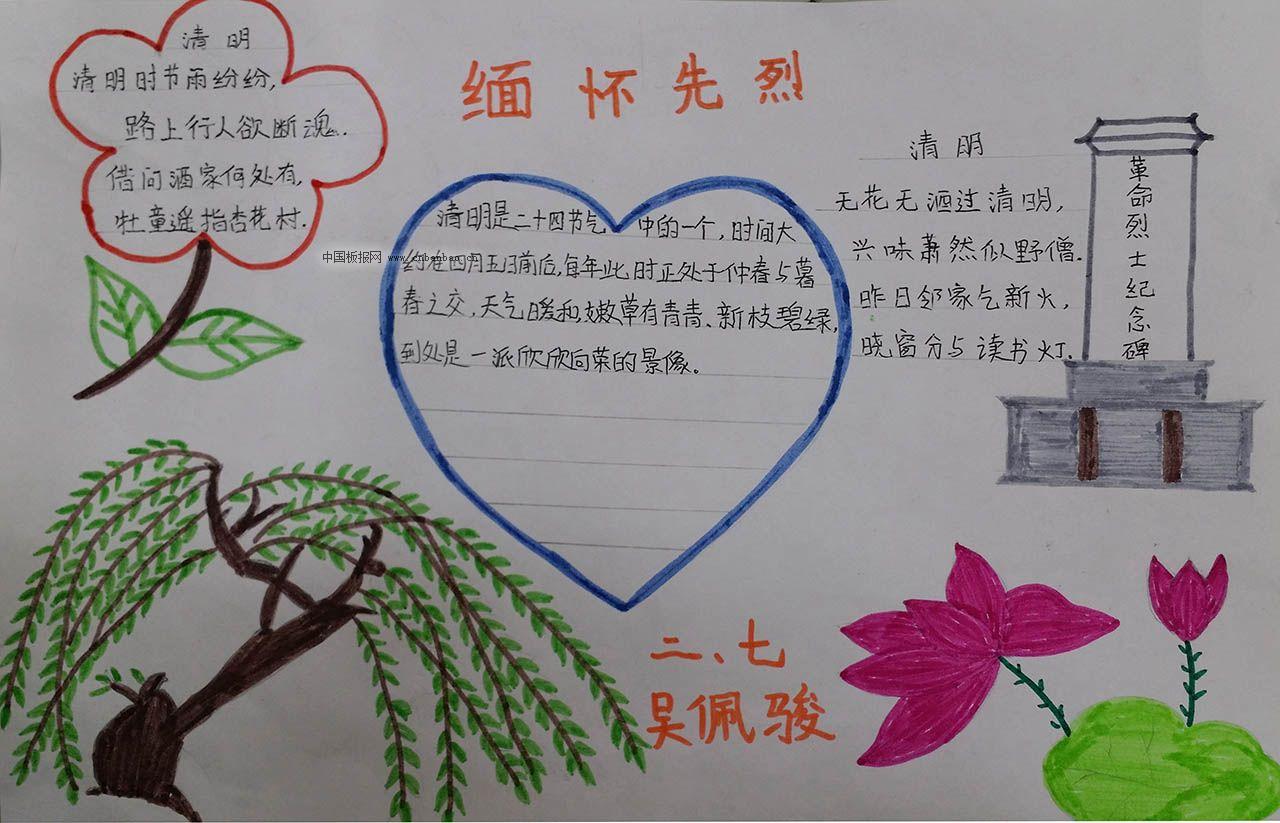 缅怀先烈
清明
清明时节雨纷纷,
路上行人欲断魂.
借问酒家何处有,
牡童遥指杏花村.
中国板报网 www.cnbanban.cn
清明是二十四节气 中的一个,时间大
约在四月五日前后,每年此时正处于仲春与暮
春之交,天气暖和,嫩草有青青、新枝碧绿,
到处是一派欣欣向荣的景像。
清明
无花无酒过清明,
兴味萧然似野僧.
昨日邻家乞新火,
晓窗分与读书灯.
革命烈士纪念碑
二、七
吴佩骏